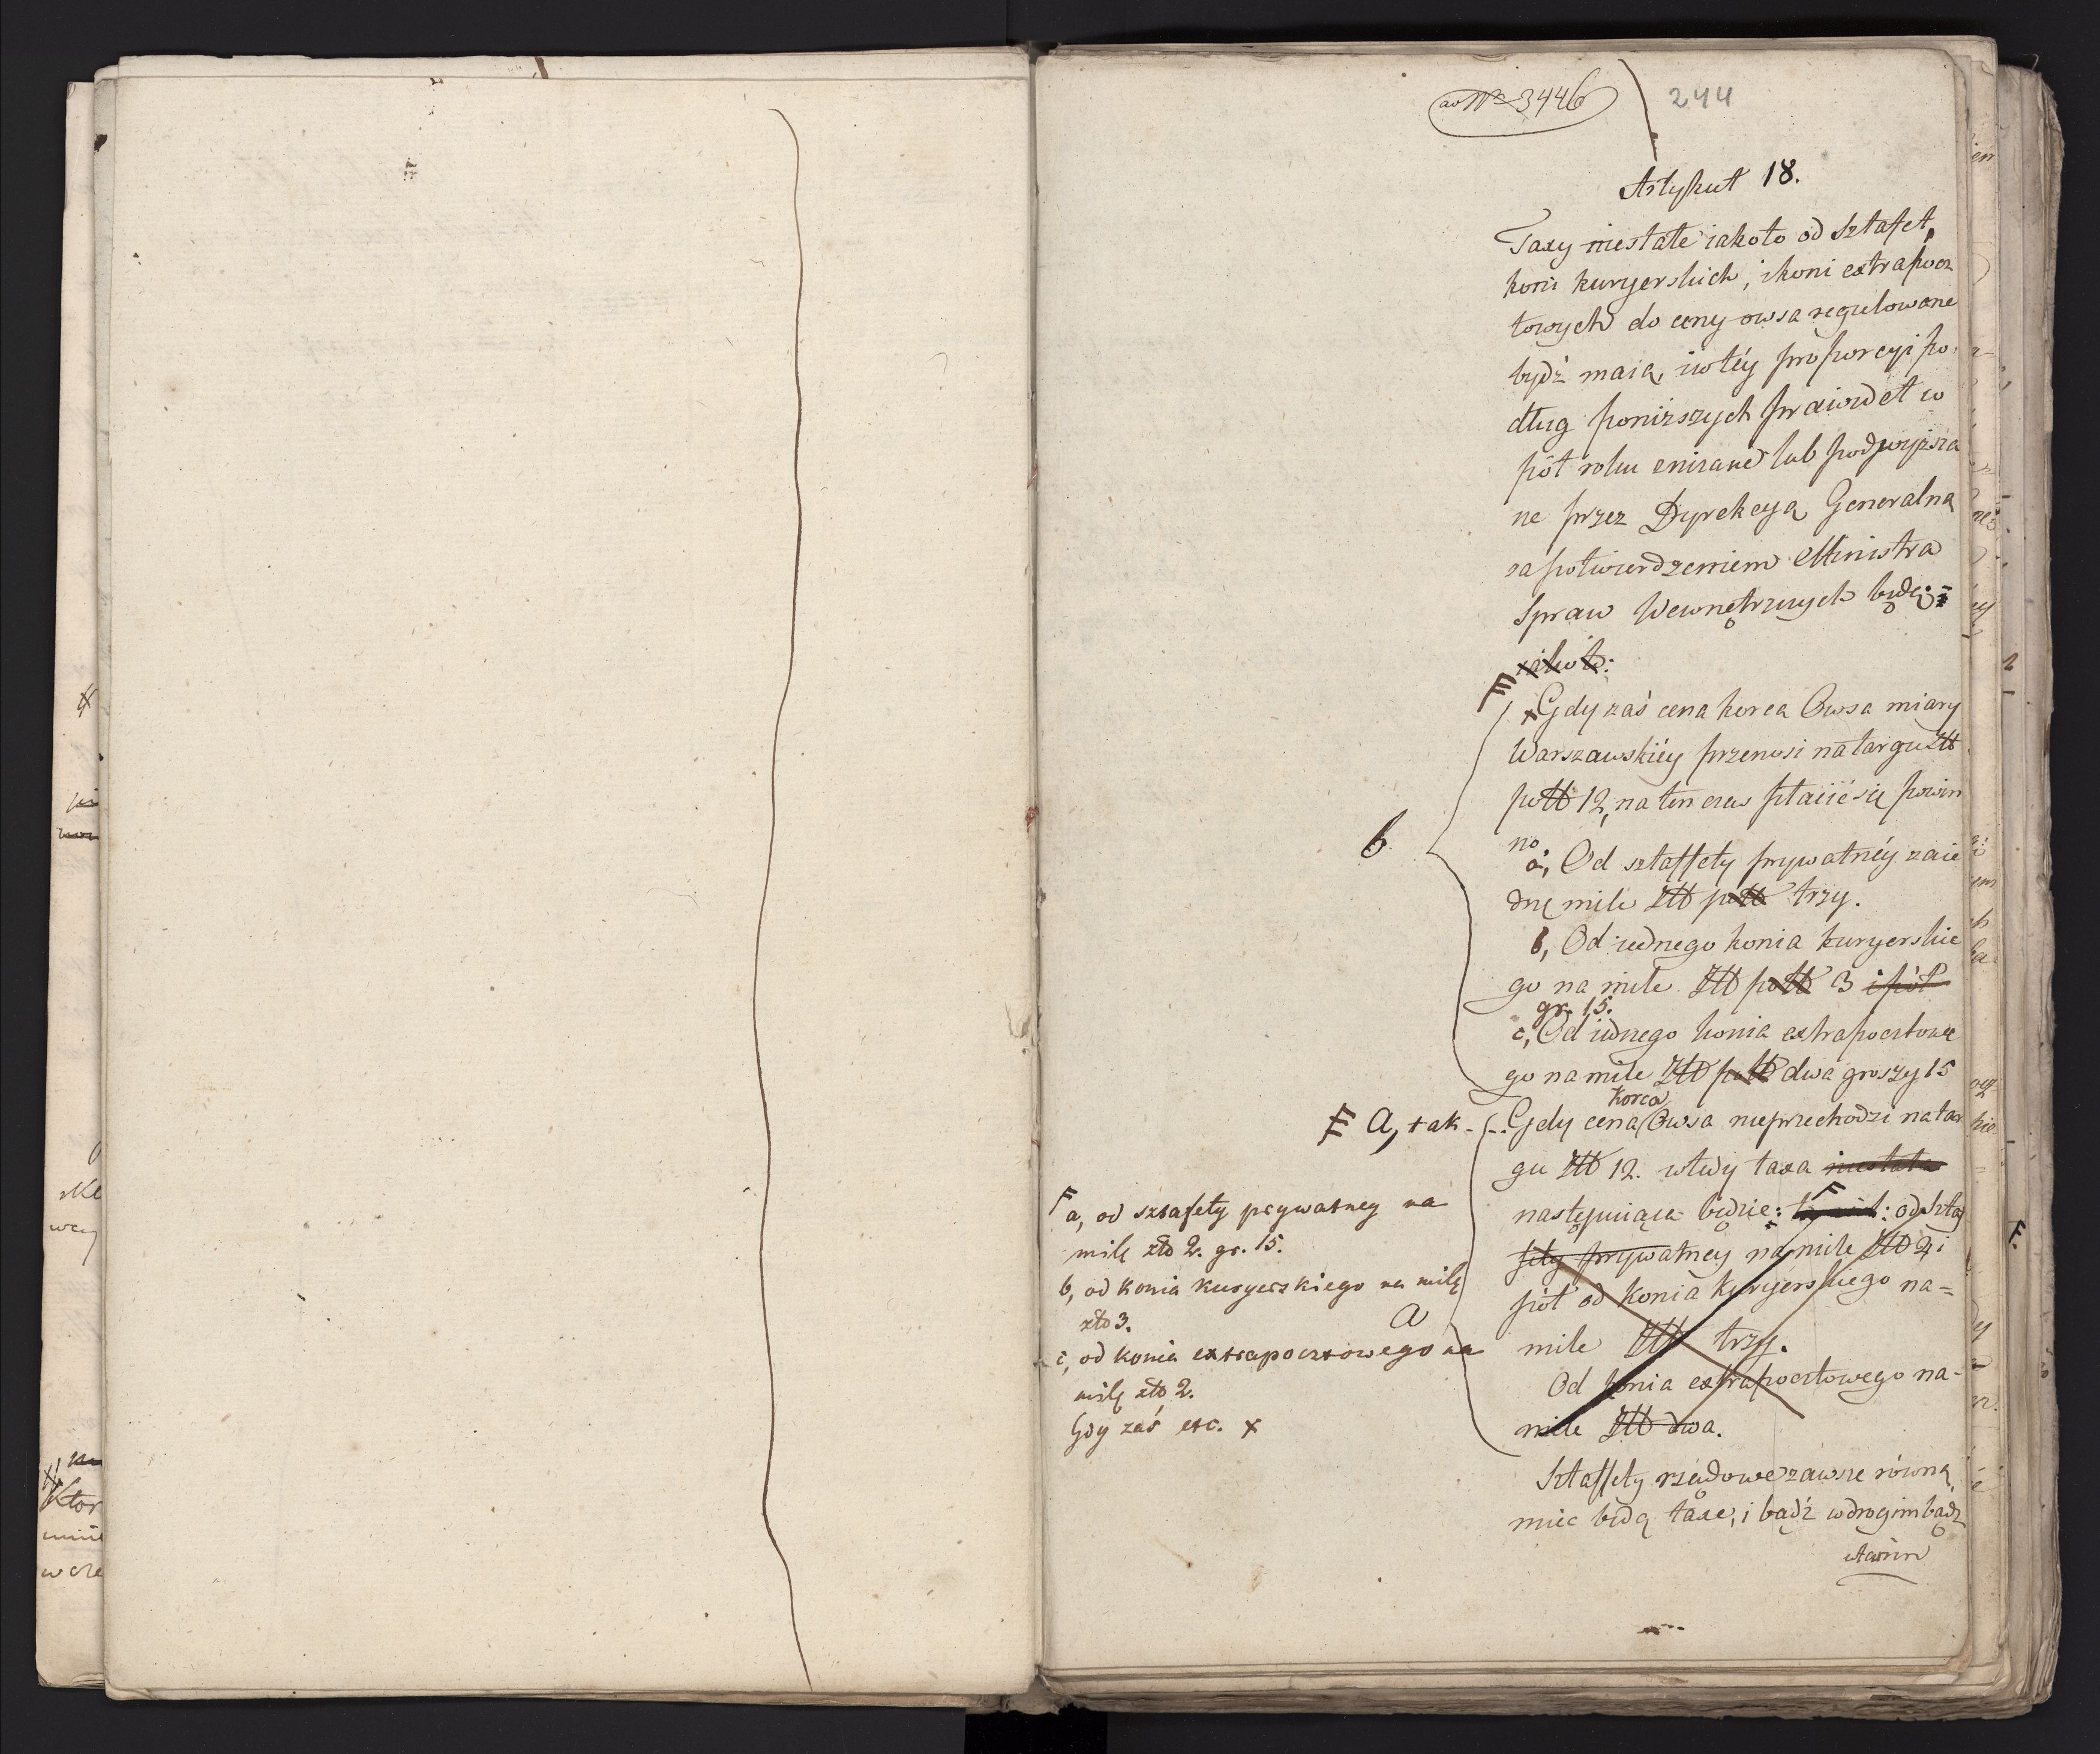 ad No 3446
244
Artykuł 18.
Taxy niestałe iakoto od sztafet,
koni kuryerskich, i koni extrapocz
towych do ceny owsa regulowane
bydź maią, i w téy proporcyi po
dług poniższych prawideł w
pół roku zniżane lub podwyższa
ne przez Dyrekcyą Generalną
za potwierdzeniem Ministra
Spraw Wewnętrznych będą:
iako to:
Gdy zaś cena korca Owsa miary
Warszawskiéy przenosi na targu Złł
poll 12, na ten czas płacić się powin
no
a, Od sztaffety prywatnéy za ie
dnę milę Złł poll trzy.
b, Od iednego konia kuryerskie
go na milę Złł poll 3 i pół
gr. 15.
c, Od iednego konia extrapocztowe
go na milę Złł poll dwa groszy 15
b
F a, tak - Gdy cena korca Owsa nieprzechodzi na tar
gu Złł 12. wtedy taxa niestała
następuiąca będzie: od szta
fety prywatney na milę Złł 2 i
pół od konia kuryerskiego na=
milę Złł trzy.
Od konia extrapocztowego na-
milę Złł dwa.
F a, od sztafety prywatney na
milę złp 2. gr. 15.
b, od konia kuryerskiego na milę
złp 3.
c, od konia extrapocztowego na
milę złp 2.
Gdy zaś etc. x
a
Sztaffety rządowe zawsze równą
mieć będą taxę, i bądź w drogim bądź
w tanim